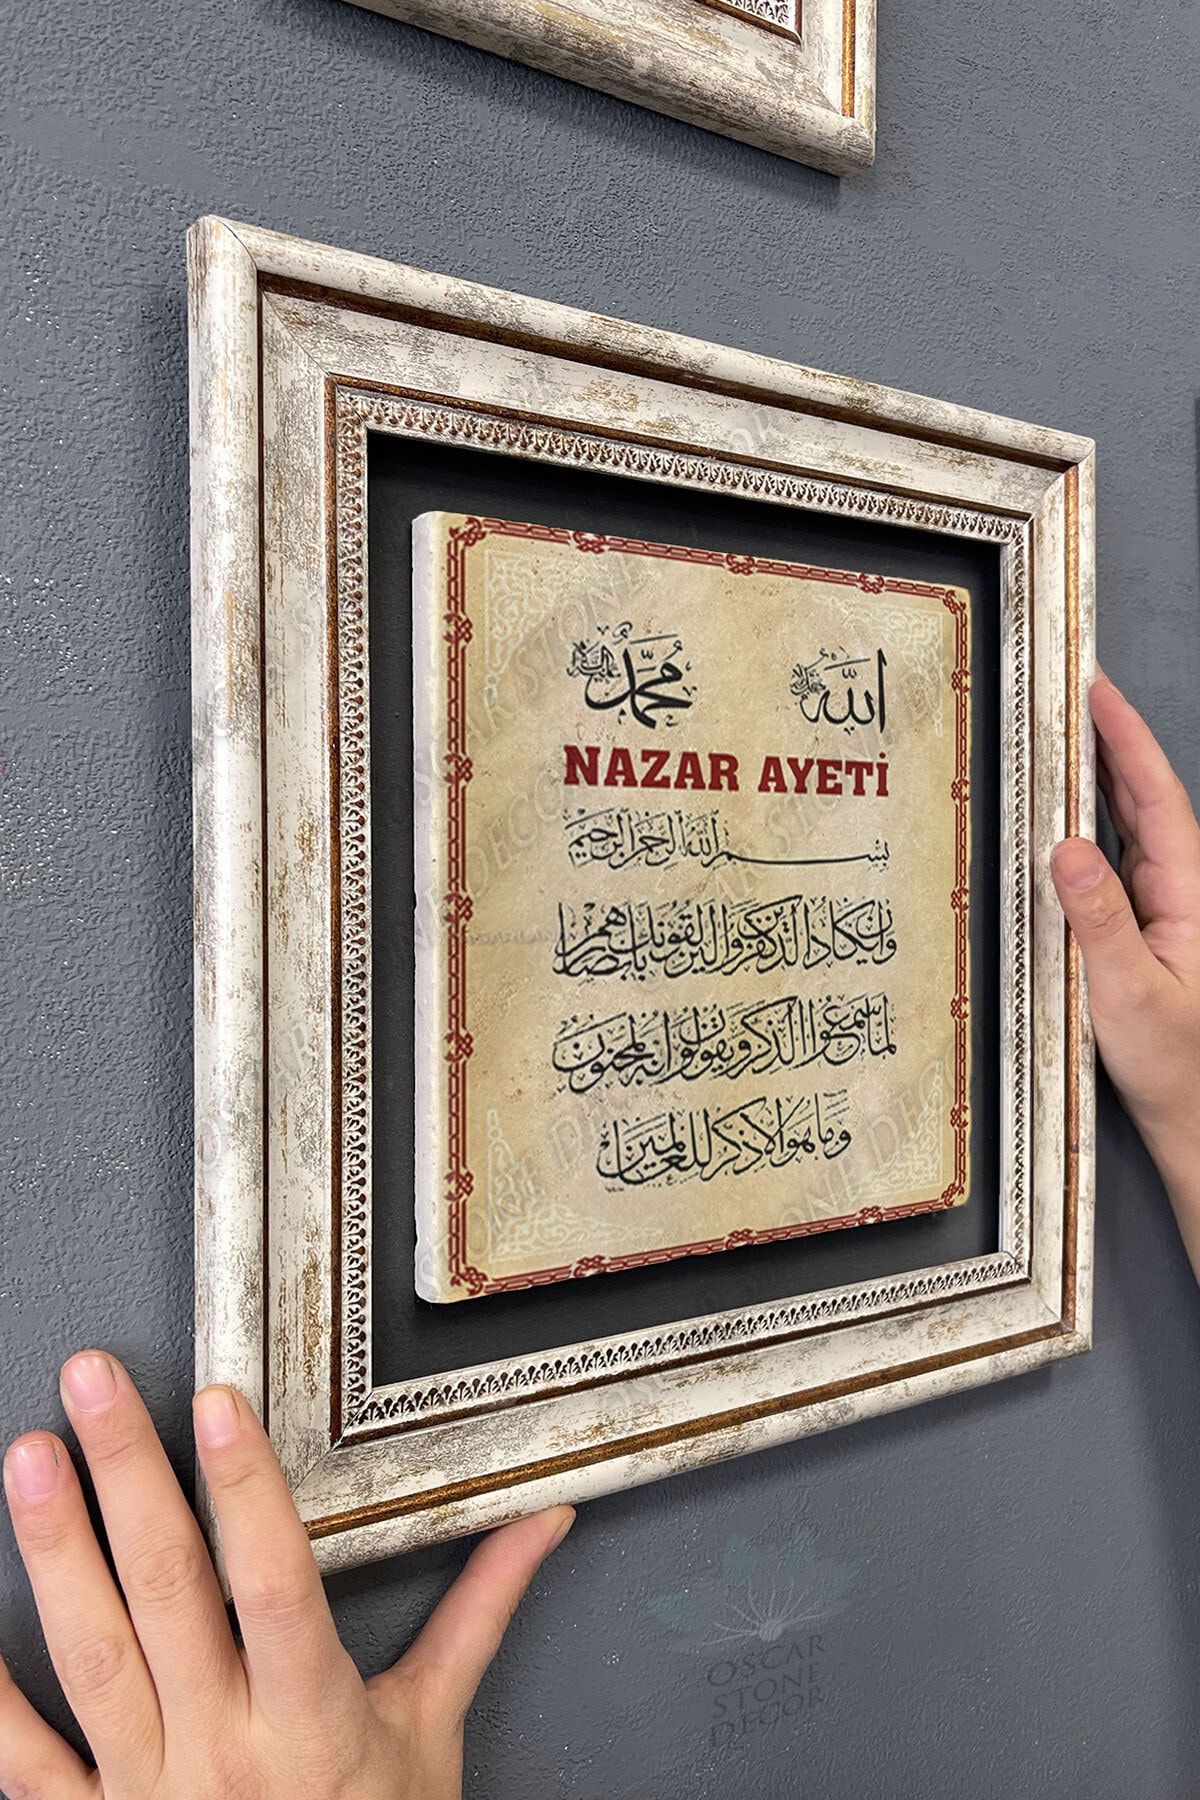 الله جل جلاله محمد عليه السلام
NAZAR AYETİ
بسم الله الرحمن الرحيم
وان يكاد الذين كفروا ليزلقونك بابصارهم
لما سمعوا الذكر ويقولون انه لمجنون
وما هو الا ذكر للعالمين
OSCAR
STONE
DECOR